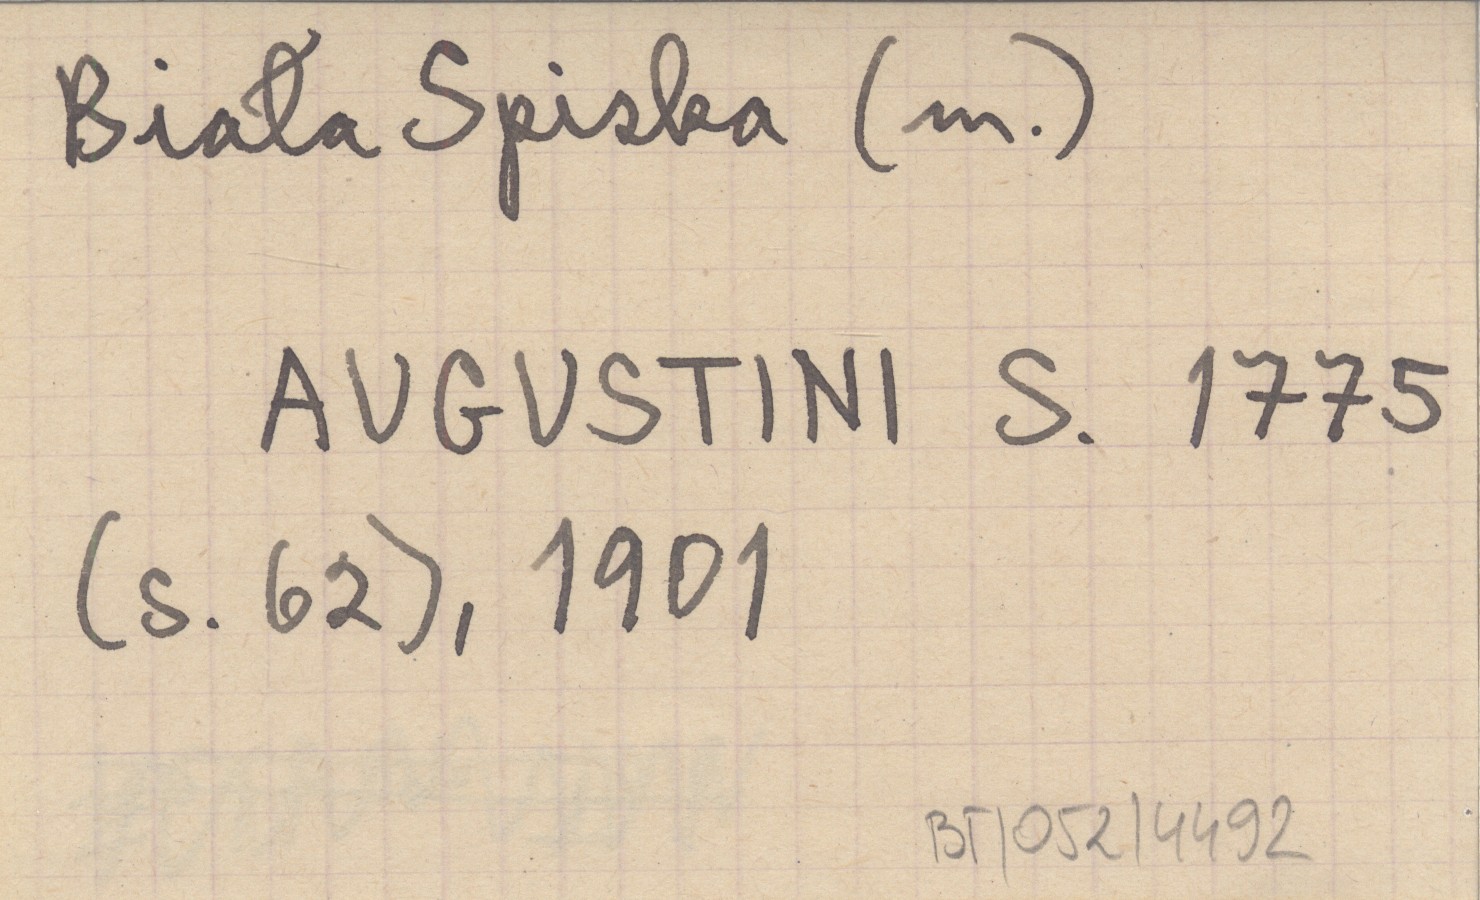 Biała Spiska (m.)
AUGUSTINI S. 1775
(s. 62), 1901
BT/052/4492